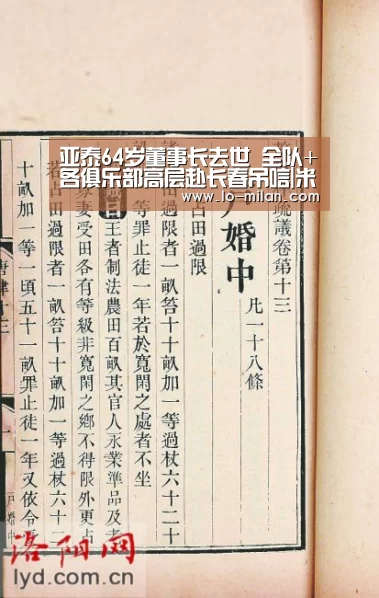 亚泰64岁董事长去世 全队+
各俱乐部高层赴长春吊唁|米
www.lo-milan.com
疏議卷第十三
婚中
凡一十八條
占田過限
田過限者一畝笞十十畝加一等過杖六十二十
等罪止徒一年若於寬閑之處者不坐
王者制法農田百畝其官人永業準品及老
妻受田各有等級非寬閑之鄉不得限外更占
若占田過限者一畝笞十十畝加一等過杖六十二
十畝加一等一頃五十一畝罪止徒一年又依令
唐律十三
戶婚中
洛阳网
lyd.com.cn